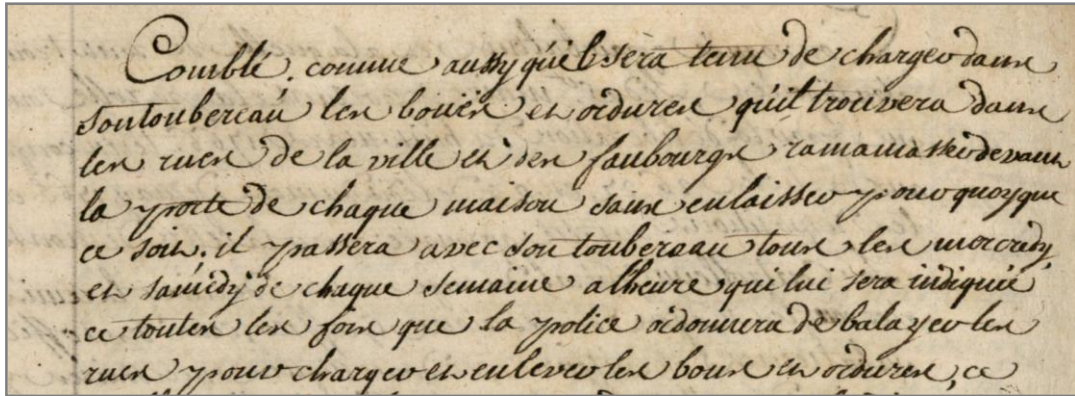 Comblé. comme aussy qu'el sera tenu de charger dans
son toubereau les bouës et ordures qu'il trouvera dans
les rues de la ville et des faubourgs ramamasser devant
la porte de chaque maison sans en laisser pour quoy que
ce soit. il passera avec son toubereau tous les mercredy
et samedy de chaque semaine a lheure qui lui sera indiquée
ce toutes les fois que la police ordonnera de balayer les
rues pour charger et enlever les boues et ordures, ce